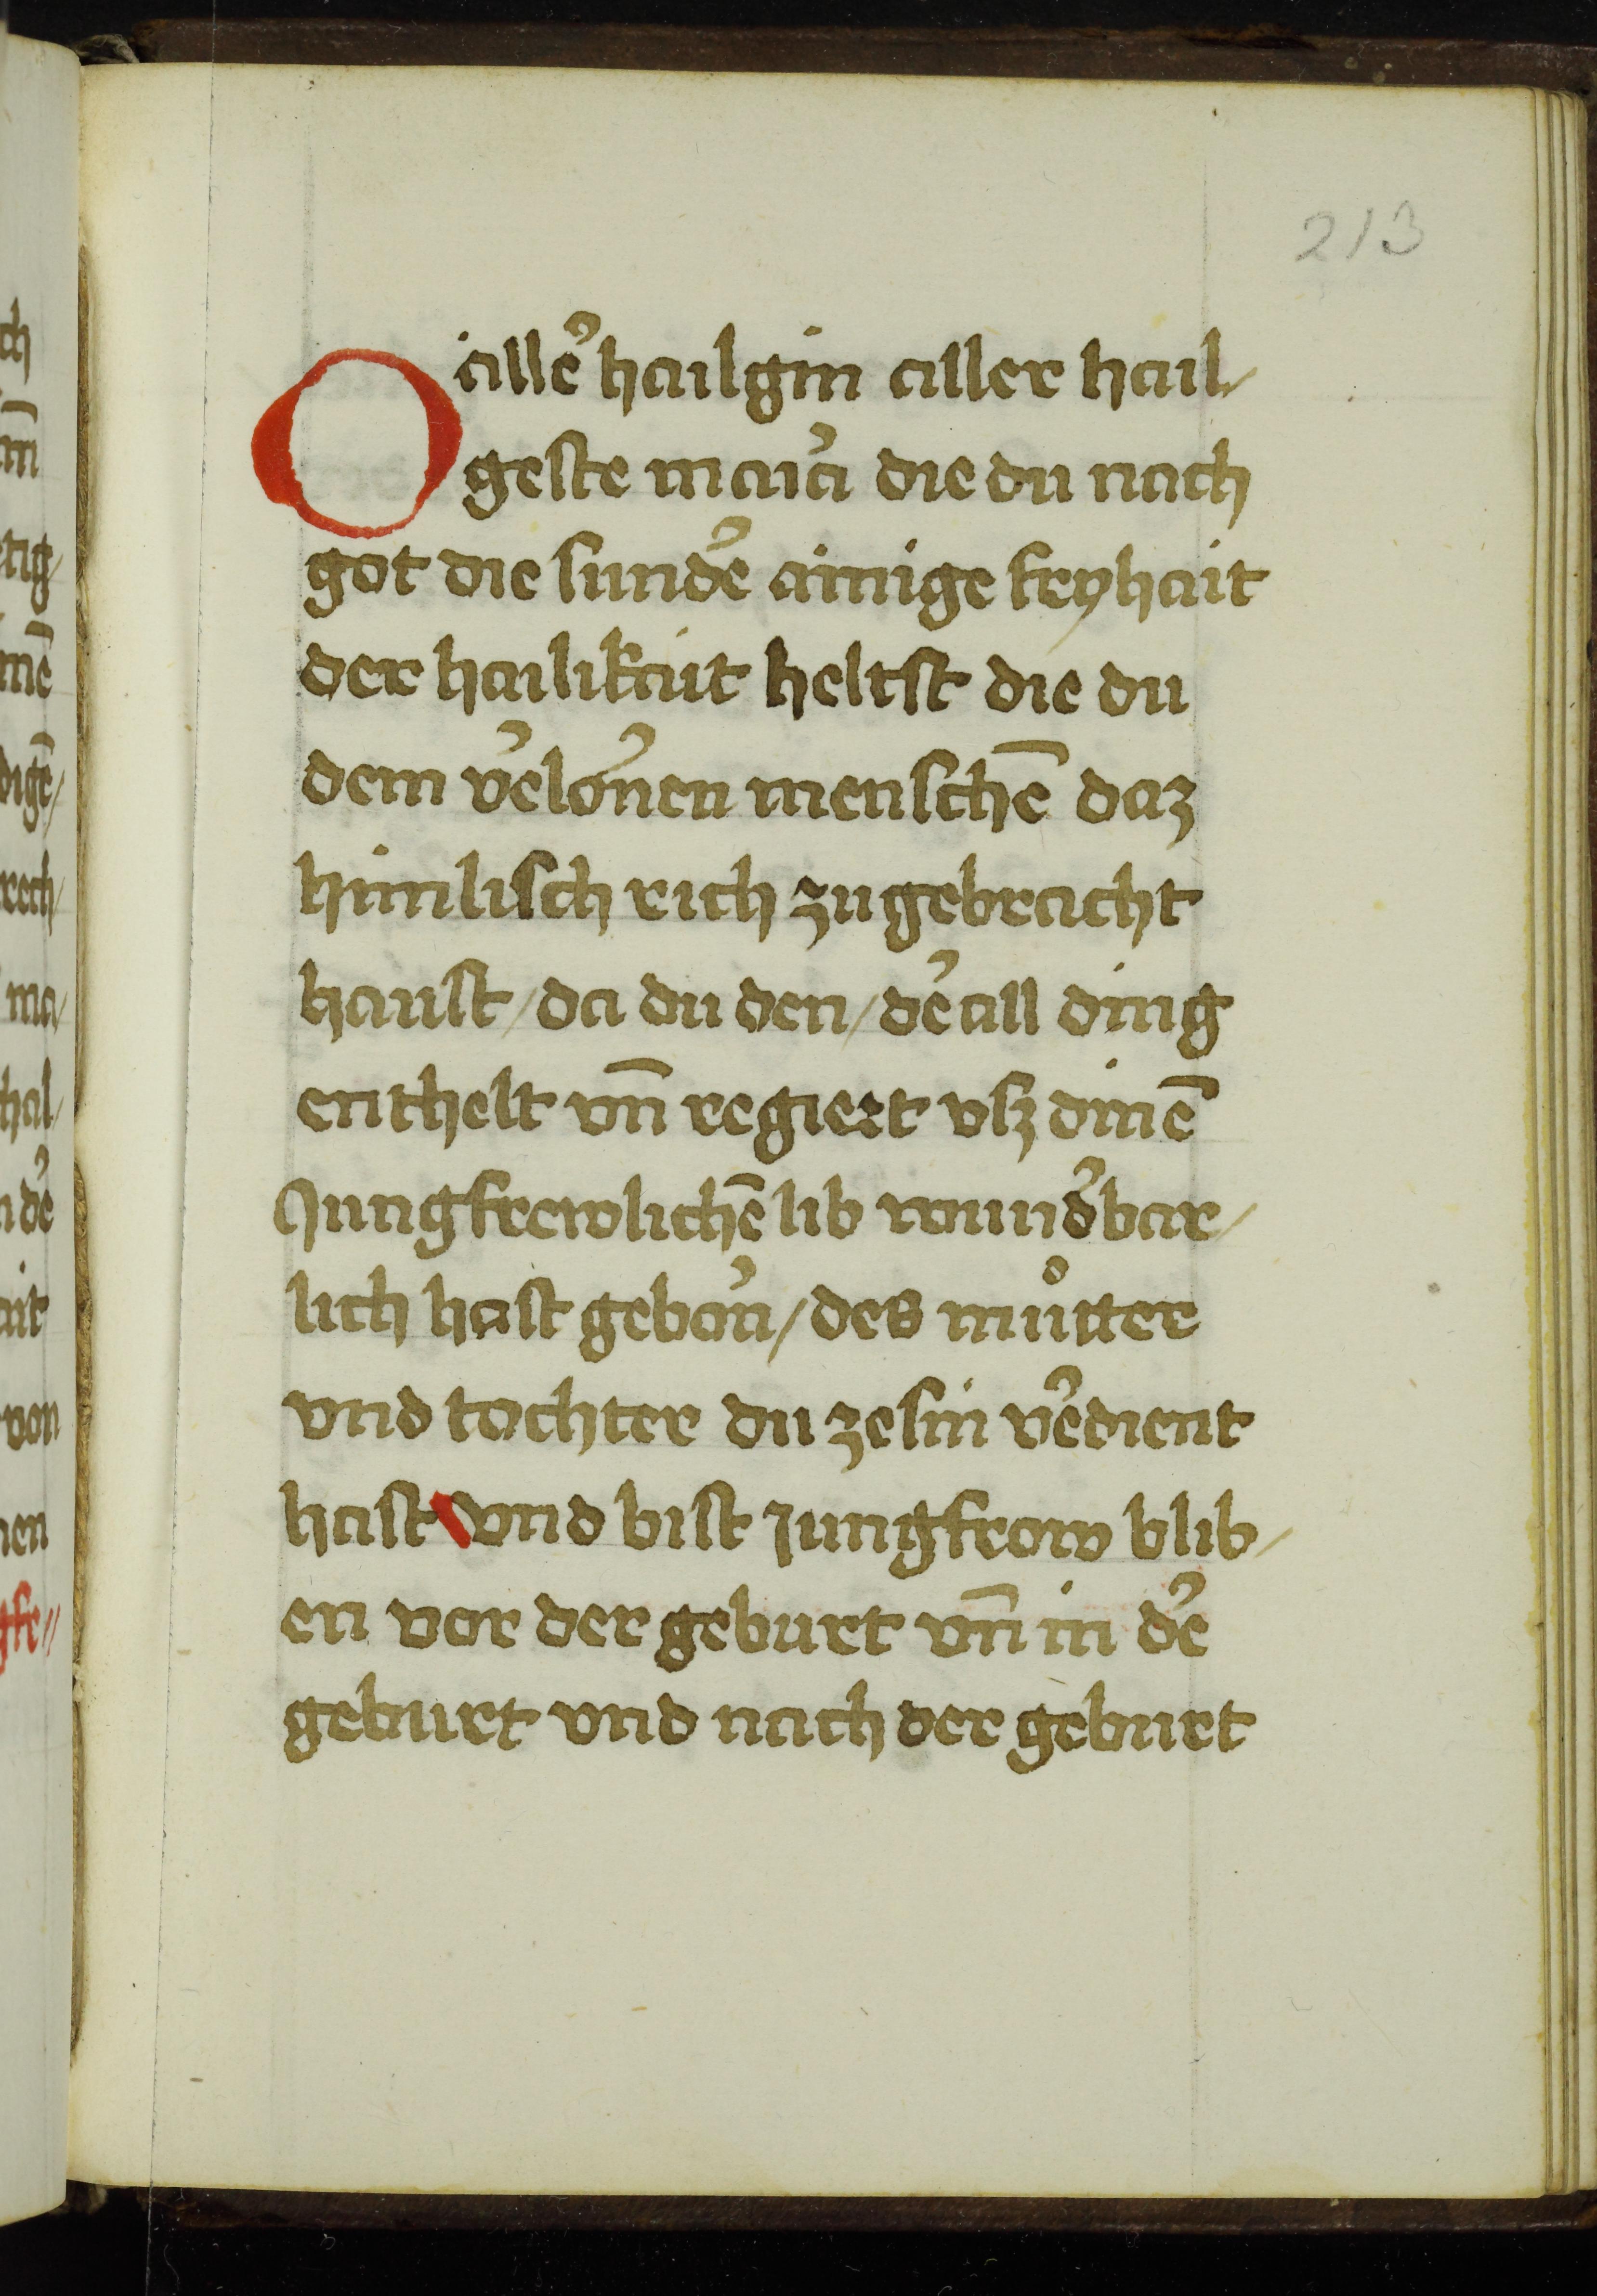 213
O alleˀ hailgin aller hail/
geste maiˀa die du nach
got die sundeˀ ainige fryhait
der hailikait heltst die du
dem vˀeloˀnen menschē daz
himlisch rich zugebracht
haust / da du den / deˀ all ding
enthelt vn̄ regiert vsz dinē
Jungfrewlichē lib wundˀbar/
lich hast geboˀn / des můtter
vnd tochter du ze sin vˀedient
hast vnd bist Jungfrow blib/
en vor der geburt vn̄ in deˀ
geburt vnd nach der geburt